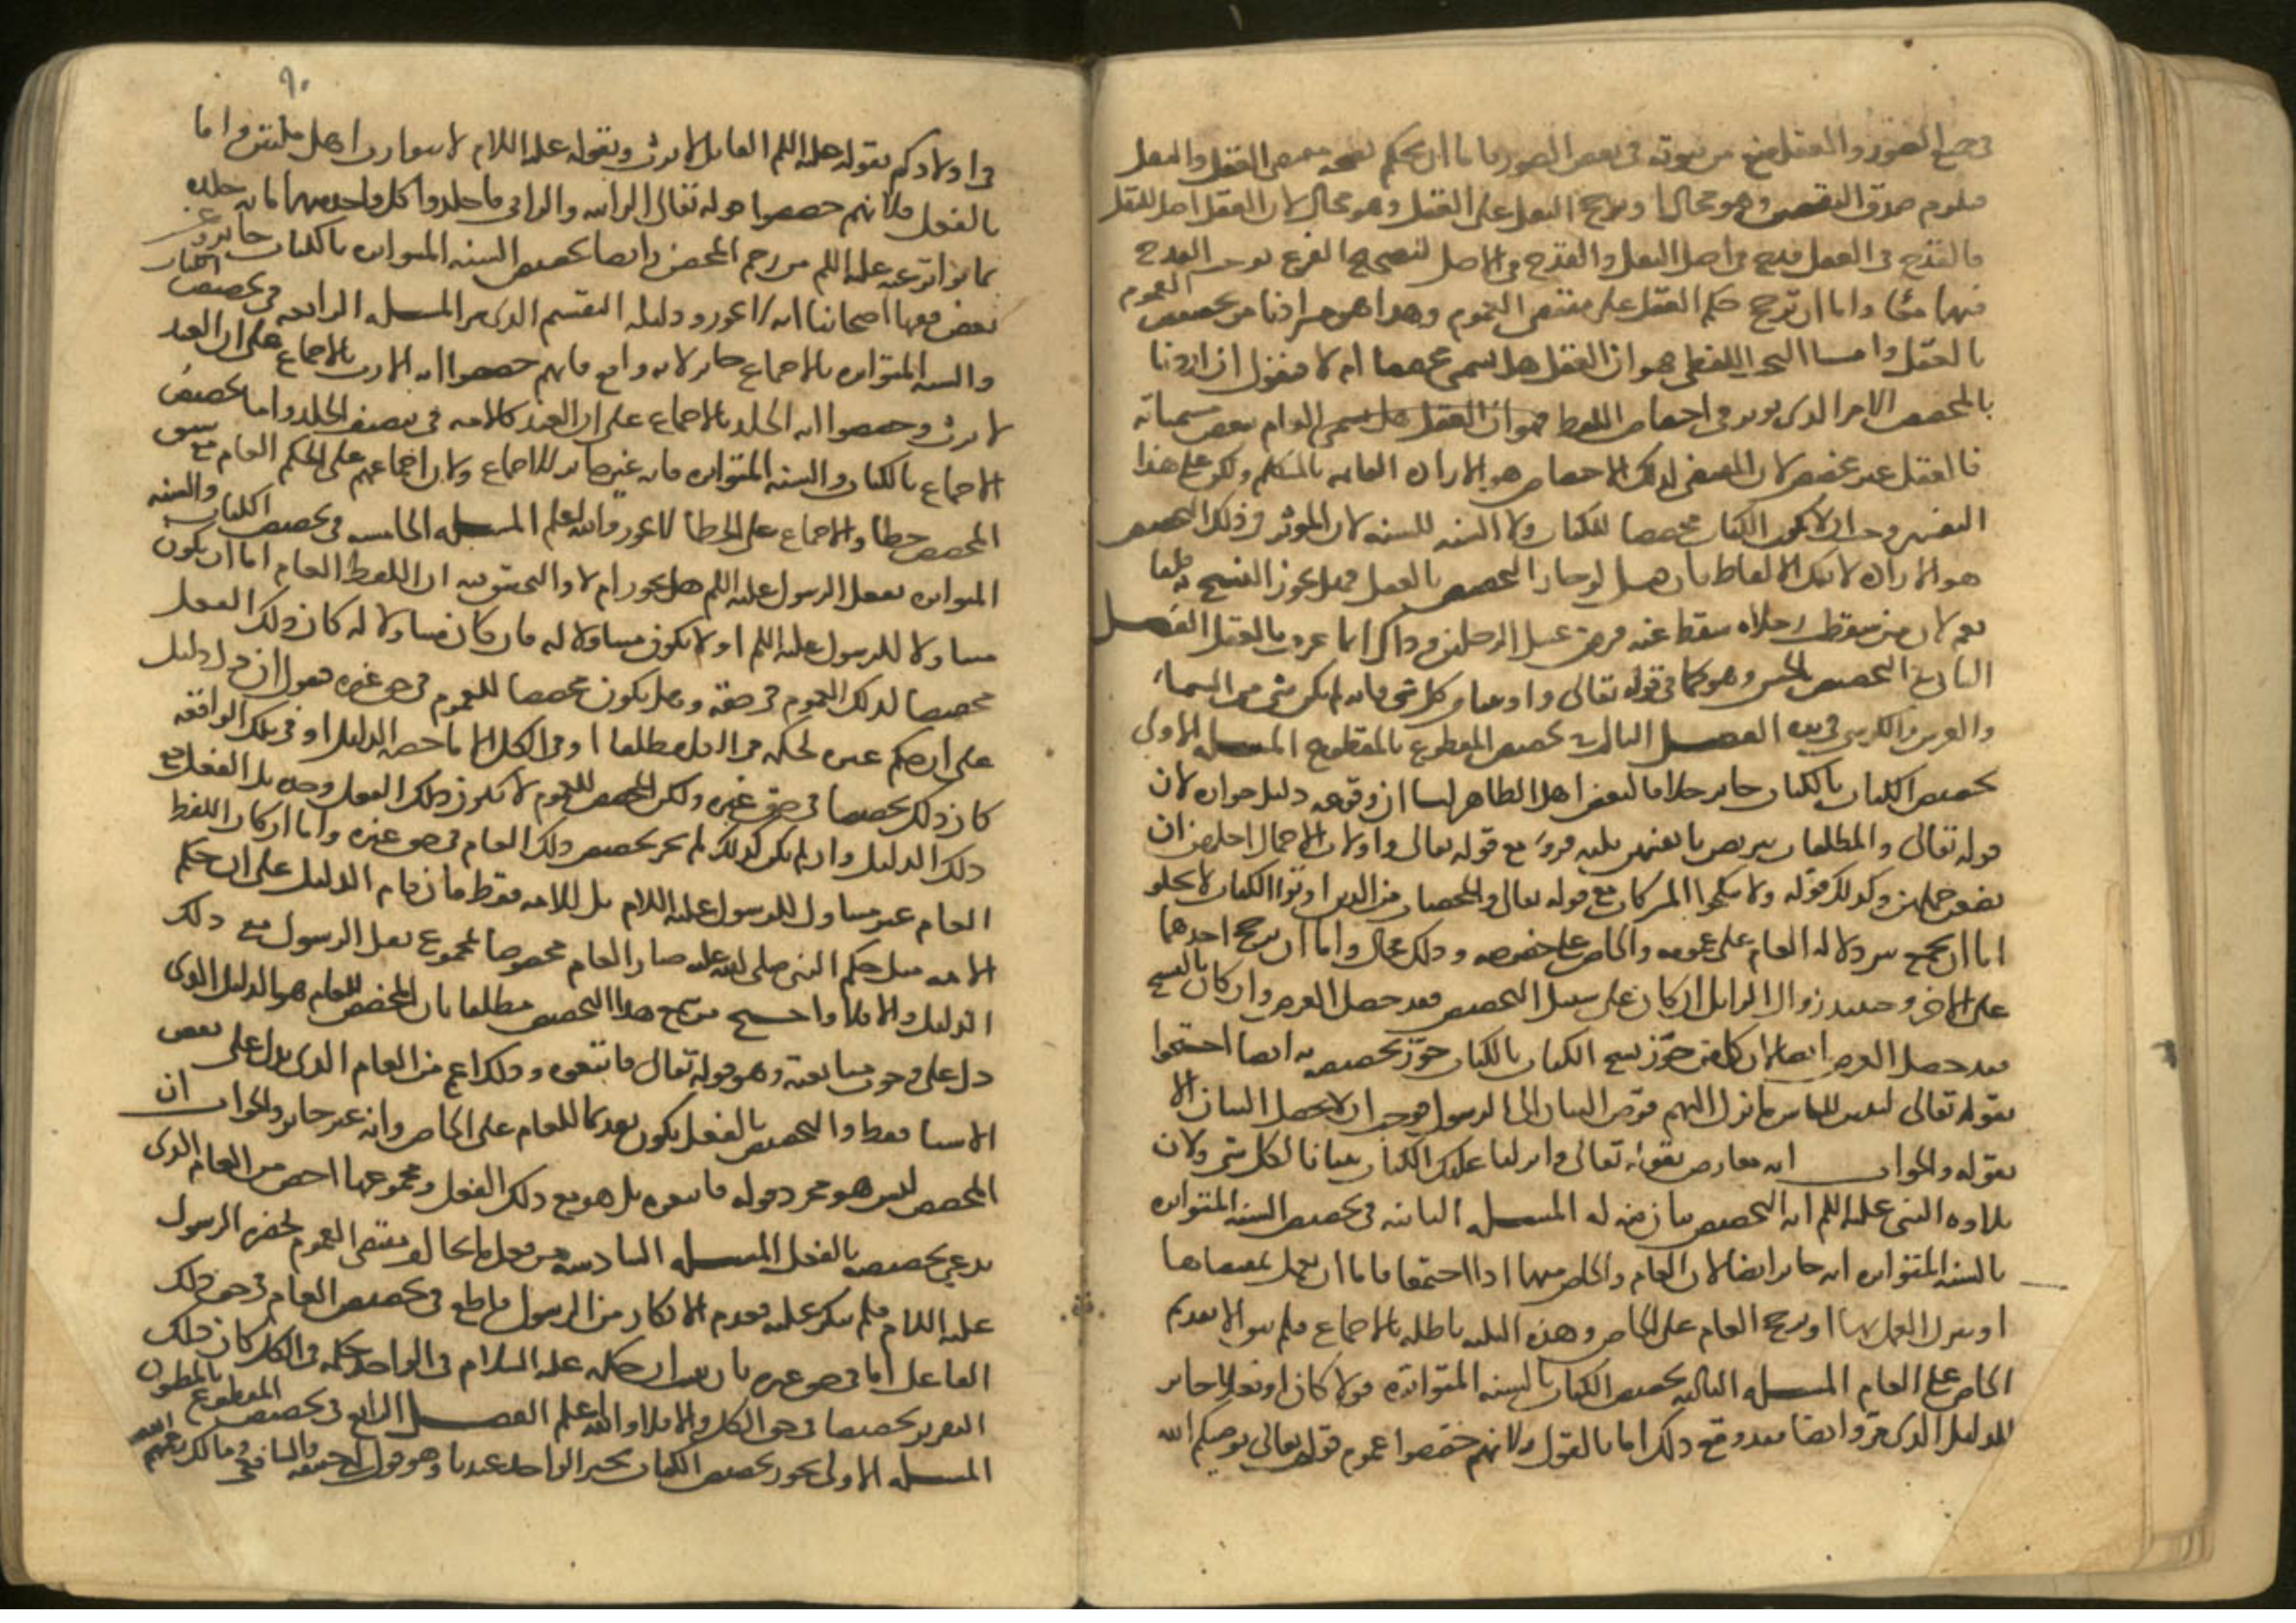 في جميع الصور والعقل منع من ثبوته في بعض الصور فاما ان يحكم بصحه مقتضى العقل والنقل
فيلزم صدق النقيضين وهو محال او يرجح النقل على العقل وهو محال لان العقل اصل للنقل
فالقدح في العقل قدح في اصل النقل والقدح في الاصل لتصحيح الفرع يوجب القدح
فيهما معا واما ان ترجح حكم العقل على مقتضى العموم وهذا هو مرادنا من تخصيص العموم
بالعقل واما البحث اللفظي فهو ان العقل هل يسمى مخصصا ام لا فنقول ان اردنا
بالمخصص الامر الذي يوثر في اختصاص اللفظ فهو ان العقل هل يسمى العام ببعض مسمياته
فالعقل غير مخصص لان المقتضي لذلك الاختصاص هو الاراده القائمه بالمتكلم ولكن على هذا
التفسير وجب ان لا يكون الكتاب مخصصا للكتاب ولا السنه للسنه لان الموثر في ذلك التخصيص
هو الاراده لا تلك الالفاظ فان قيل لو جاز التخصيص بالعقل فهل يجوز النسخ به قلنا
نعم لان من سقطت رجلاه سقط عنه فرض غسل الرجلين وذاك انما عرف بالعقل الفصل
الثاني في التخصيص بالحس وهو كما في قوله تعالى واوتيت من كل شي فانه لم يكن شي من السماء
والعرش والكرسي في يده الفصل الثالث في تخصيص المقطوع بالمقطوع المسله الاولى
تخصيص الكتاب بالكتاب جايز خلافا لبعض اهل الظاهر لنا ان وقوعه دليل جوازه لان
قوله تعالى والمطلقات يتربصن بانفسهن ثلثه قروء مع قوله تعالى واولات الاحمال اجلهن ان
يضعن حملهن وكذلك قوله ولا تنكحوا المشركات مع قوله تعالى والمحصنات من الذين اوتوا الكتاب لا يخلو
اما ان يجمع بين دلاله العام على عمومه والخاص على خصوصه وذلك محال واما ان يرجح احدهما
على الاخر وحينئذ زوال الزايل ان كان على سبيل التخصيص فقد حصل الغرض وان كان بالنسخ
فقد حصل الغرض ايضا لان كل من جوز نسخ الكتاب بالكتاب جوز تخصيصه به ايضا احتجوا
بقوله تعالى لتبين للناس ما نزل اليهم فوض البيان الى الرسول فوجب ان لا يحصل البيان الا
بقوله والجواب انه معارض بقوله تعالى وانزلنا عليك الكتاب تبيانا لكل شي ولان
تلاوه النبي عليه السلم ايه التخصيص بيان منه له المسله الثانيه في تخصيص السنه المتواتره
بالسنه المتواتره انه جايز ايضا لان العام والخاص منهما اذا اجتمعا فاما ان يعمل بمقتضاهما
او يترك العمل بهما او يرجح العام على الخاص وهذه الثلثه باطله بالاجماع فلم يبق الا تقديم
الخاص على العام المسله الثالثه تخصيص الكتاب بالسنه المتواتره قولا كان او فعلا جايز
للدليل الذي مر وايضا فقد وقع ذلك اما بالقول فلانهم خصصوا عموم قوله تعالى يوصيكم الله
٩٠
في اولادكم بقوله عليه السلم القاتل لا يرث وبقوله عليه السلام لا يتوارث اهل ملتين واما
بالفعل فلانهم خصصوا قوله تعالى الزانيه والزاني فاجلدوا كل واحد منهما مائه جلده
بما تواتر عنه عليه السلم من رجم المحصن وايضا تخصيص السنه المتواتره بالكتاب جايز وعن
بعض فقها اصحابنا انه لا يجوز ودليله التقسيم الذي مر المسله الرابعه في تخصيص الكتاب
والسنه المتواتره بالاجماع جايز لانه واقع فانهم خصصوا ايه الارث بالاجماع على ان العبد
لا يرث وخصصوا ايه الجلد بالاجماع على ان العبد كالامه في تنصيف الجلد واما تخصيص
الاجماع بالكتاب والسنه المتواتره فانه غير جايز للاجماع ولان اجماعهم على الحكم العام مع سبق
المخصص خطا والاجماع على الخطا لا يجوز والله اعلم المسله الخامسه في تخصيص الكتاب والسنه
المتواتره بفعل الرسول عليه السلم هل يجوز ام لا والتحقيق فيه ان اللفظ العام اما ان يكون
متناولا للرسول عليه السلم او لا يكون متناولا له فان كان متناولا له كان ذلك الفعل
مخصصا لذلك العموم في حقه وهل يكون مخصصا للعموم في حق غيره فنقول ان دل دليل
على ان حكم غيره كحكمه في الكل مطلقا او في الكل الا ما خصه الدليل او في تلك الواقعه
كان ذلك تخصيصا في حق غيره ولكن المخصص للعموم لا يكون ذلك الفعل وحده بل الفعل مع
ذلك الدليل وان لم يكن كذلك لم يجز تخصيص ذلك العام في حق غيره واما ان كان اللفظ
العام غير متناول للرسول عليه السلام بل للامه فقط فان قام الدليل على ان حكم
الامه مثل حكم النبي صلى الله عليه صار العام مخصوصا بمجموع فعل الرسول مع ذلك
الدليل والا فلا واحتج من منع هذا التخصيص مطلقا بان المخصص للعام هو الدليل الذي
دل على وجوب متابعته وهو قوله تعالى فاتبعوه وذلك اعم من العام الذي يدل على بعض
الاشيا فقط والتخصيص بالفعل يكون تقديما للعام على الخاص وانه غير جايز والجواب ان
المخصص ليس هو مجرد قوله فاتبعوه بل هو مع ذلك الفعل ومجموعهما اخص من العام الذي
يدعى تخصيصه بالفعل المسله السادسه من فعل ما يخالف مقتضى العموم بحضره الرسول
عليه السلام فلم ينكر عليه فعدم الانكار من الرسول قاطع في تخصيص العام في حق ذلك
الفاعل اما في حق غيره فان ثبت ان حكمه عليه السلام في الواحد حكمه في الكل كان ذلك
التقرير تخصيصا في حق الكل والا فلا والله اعلم الفصل الرابع في تخصيص المقطوع بالمظنون
المسله الاولى يجوز تخصيص الكتاب بخبر الواحد عندنا وهو قول ابي حنيفه والشافعي ومالك رضي الله عنهم